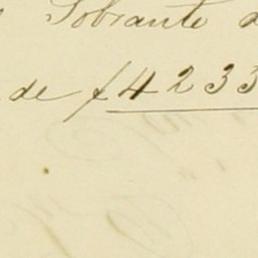 Sobrante d
de f 4233